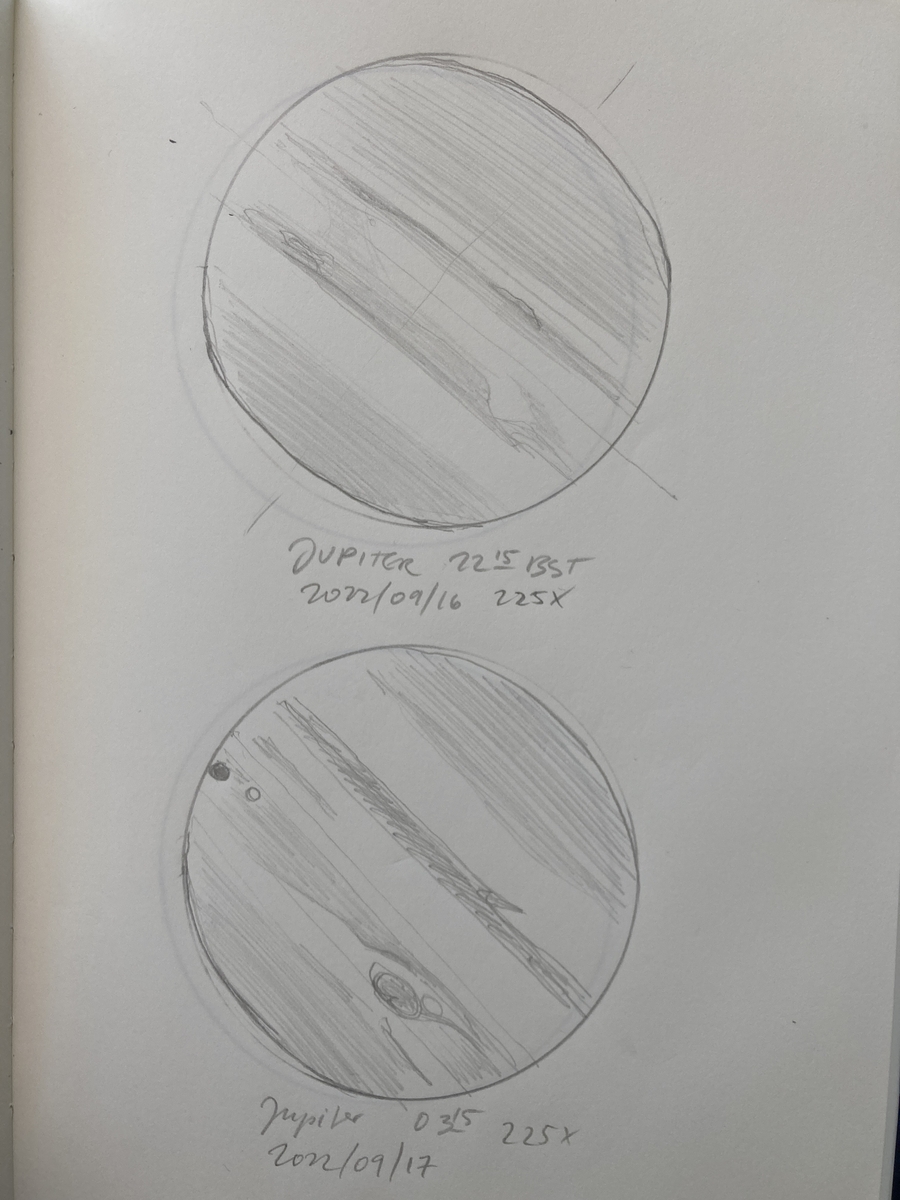 JUPITER 22 15 BST
2022/09/16 225X
Jupiter 0315 225X
2022/09/17